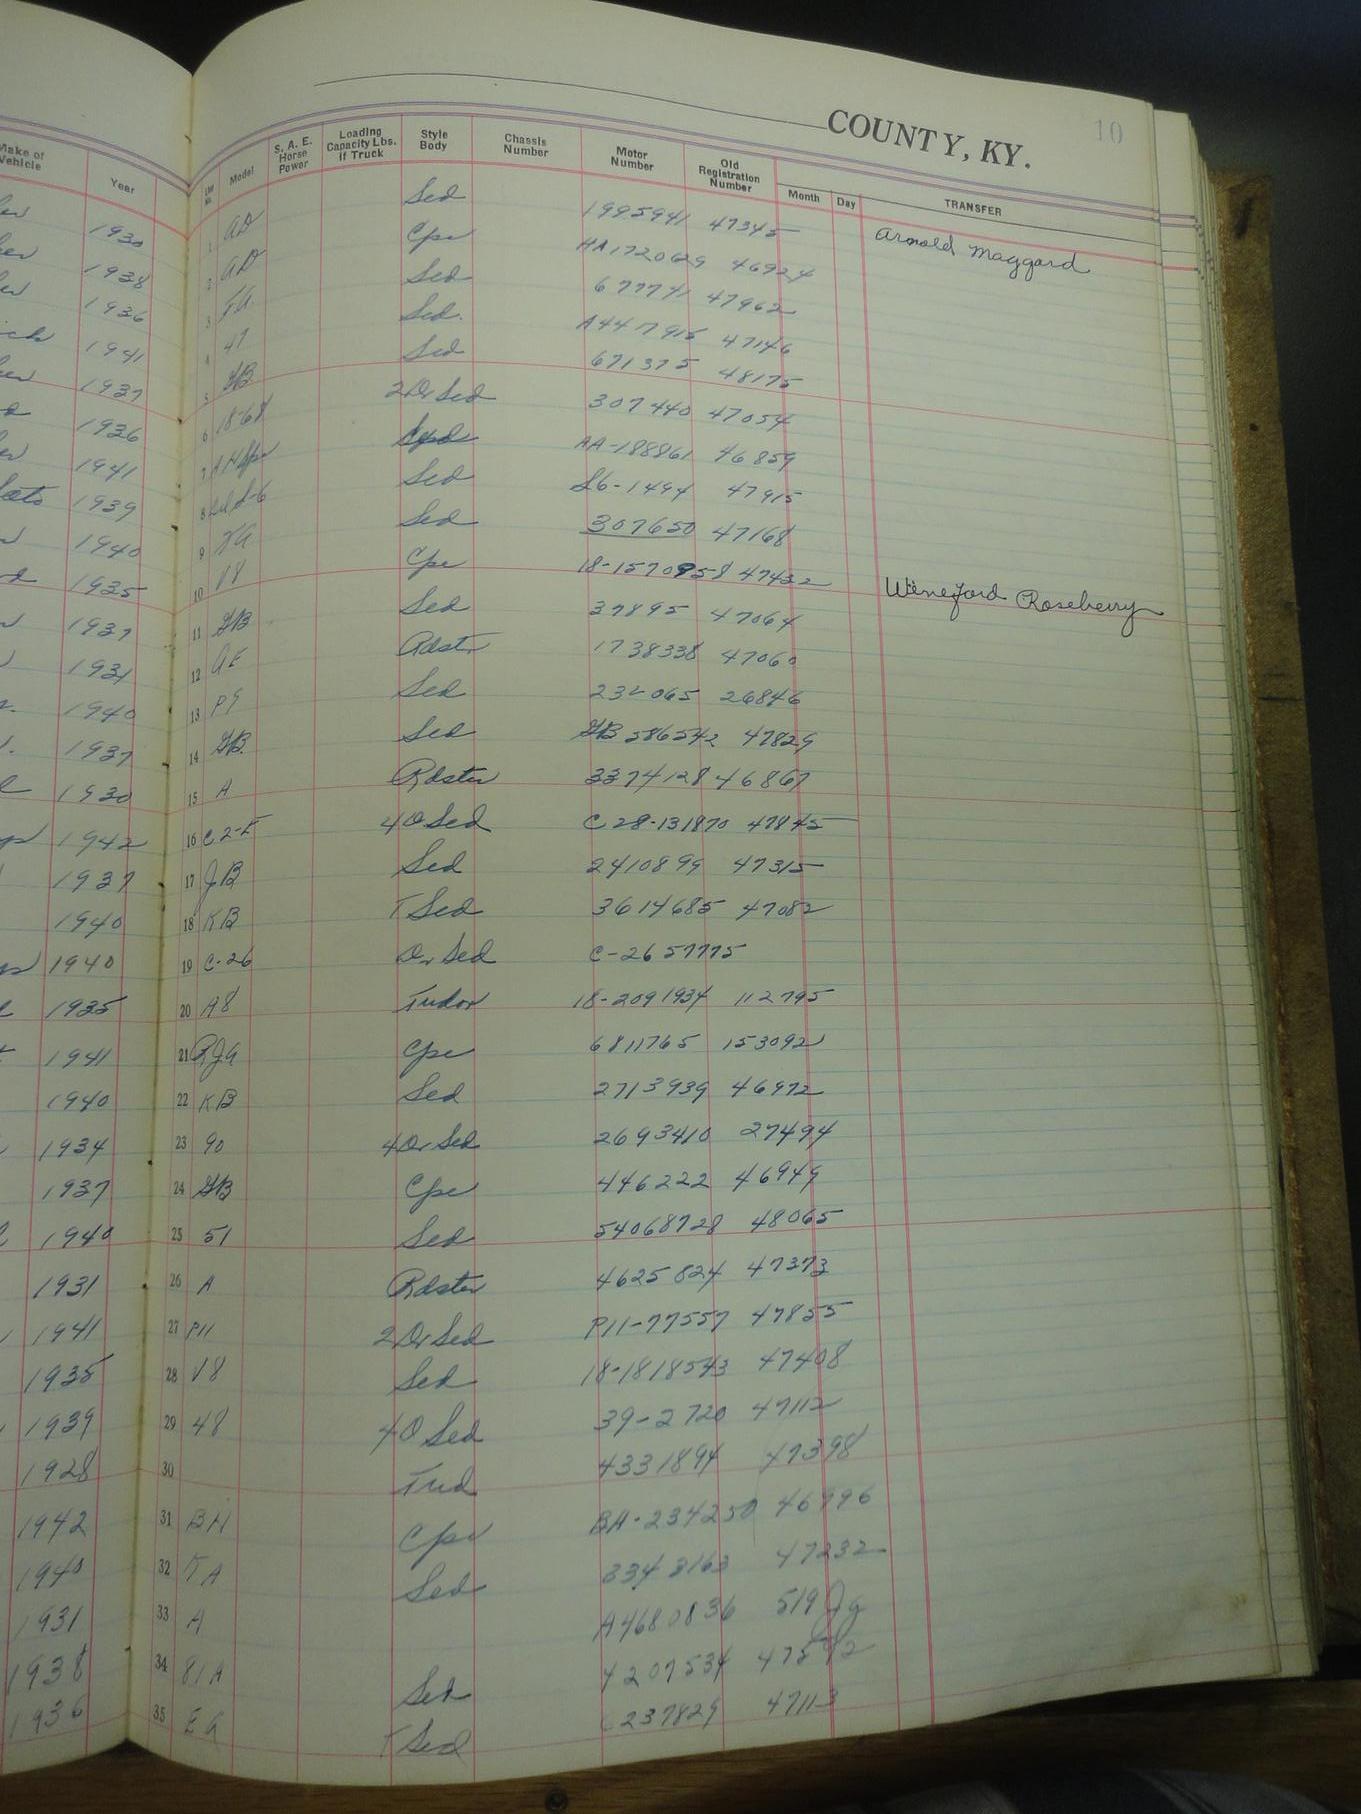 COUNTY, KY. 10
Make of Vehicle Year Line No. Model S. A. E. Horse Power Loading Capacity Lbs. If Truck Style Body Chassis Number Motor Number Old Registration Number Month Day TRANSFER
1930 1 AD Sed 1995941 47345 Arnold Maggard
1938 2 Cpe HA1720629 46924
1936 3 FA Sed 677741 47962
1941 4 47 Sed. A4417915 47146
1937 5 GB Sed 671375 48175
1936 6 18-68 2 Dr Sed 307440 47054
1941 7 AA-188861 46859
1939 8 Sed S6-1494 47915
1940 9 Sed 307650 47168
1935 10 V8 Cpe 18-1570958 47432 Wineford Roseberry
1937 11 GB Sed 37895 47064
1931 12 AE Rdstr 1738338 47060
1940 13 P9 Sed 232065 26846
1937 14 GB Sed GB 586542 47829
1930 15 A Rdster 3374128 46867
1942 16 C 2-E 4 D Sed C 28-131870 47845
1937 17 JB Sed 2410899 47315
1940 18 KB T Sed 3614685 47082
1940 19 C-26 Dr Sed C-26 57775
1935 20 A8 Tudor 18-2091934 112795
1941 21 RJG Cpe 6811765 153092
1940 22 KB Sed 2713939 46972
1934 23 90 4 Dr Sed 2693410 27494
1937 24 GB Cpe 446222 46949
1940 25 51 Sed 54068728 48065
1931 26 A Rdster 4625824 47373
1941 27 P11 2 Dr Sed P11-77557 47855
1935 28 V8 Sed 18-1818543 47408
1939 29 48 4 D Sed 39-2720 47112
1928 30 Tud 4331894 47398
1942 31 BH Cpe BA-234250 46996
1940 32 KA Sed 3343163 47232
1931 33 A A4680836
1938 34 81A Sed 4207534
1936 35 EA T Sed 237829 47113